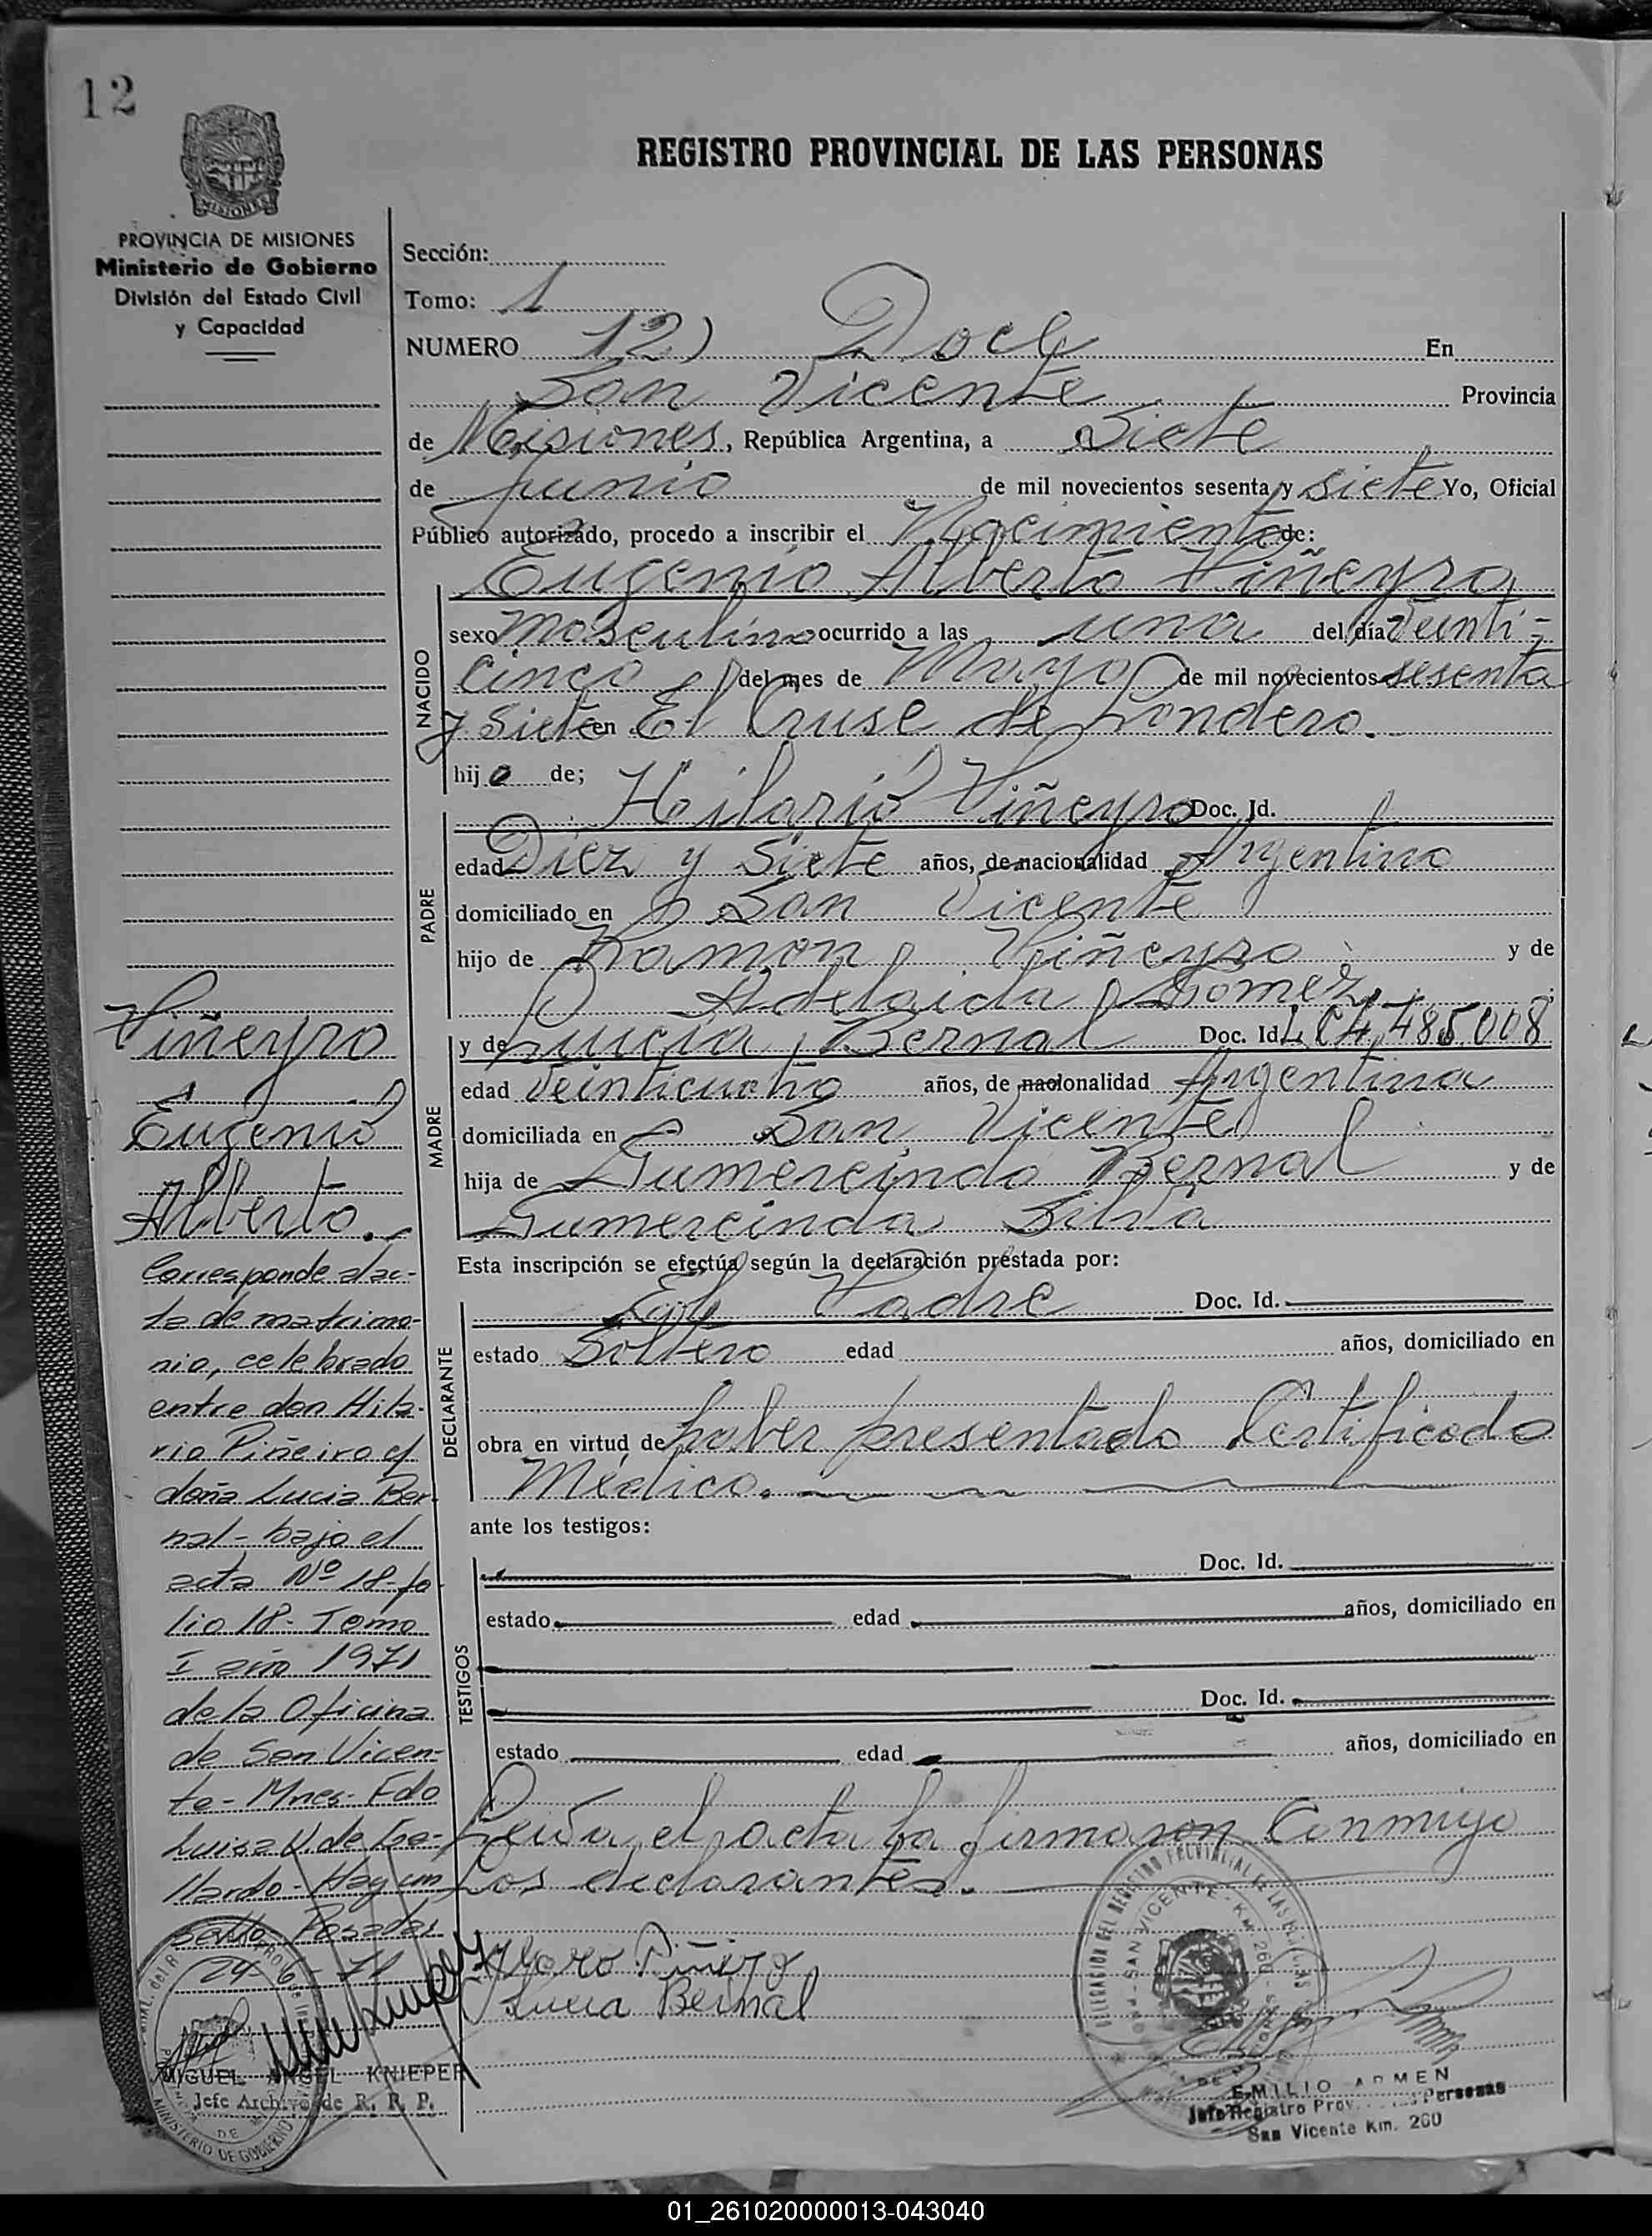 12
MISIONES
PROVINCIA DE MISIONES
Ministerio de Gobierno
División del Estado Civil
y Capacidad
REGISTRO PROVINCIAL DE LAS PERSONAS
Sección:
Tomo: 1
NUMERO 12) Doce En
San Vicente Provincia
de Misiones, República Argentina, a Siete
de junio de mil novecientos sesenta y siete Yo, Oficial
Público autorizado, procedo a inscribir el Nacimiento de:
Eugenio Alberto Piñeyro
NACIDO
sexo Masculino ocurrido a las una del día Veinti-
cinco del mes de Mayo de mil novecientos sesenta
y Siete en El Cruse de Londero.
hijo de;
PADRE
Hilario Piñeyro Doc. Id.
edad Diez y Siete años, de nacionalidad Argentino
domiciliado en San Vicente
hijo de Ramon Piñeyro y de
Adelaida Gomez
MADRE
y de Lucia Bernal Doc. Id. L.C. 4,485,008
edad Veinticuatro años, de nacionalidad Argentina
domiciliada en San Vicente
hija de Gumercindo Bernal y de
Gumercinda Silva
Esta inscripción se efectúa según la declaración prestada por:
DECLARANTE
El Padre Doc. Id.
estado Soltero edad años, domiciliado en
obra en virtud de haber presentado Certificado
Médico.
ante los testigos:
TESTIGOS
Doc. Id.
estado edad años, domiciliado en
Doc. Id.
estado edad años, domiciliado en
Leida el acta la firmaron Conmigo
Los declarantes.
Piñeyro
Eugenio
Alberto.
Corresponde al ac-
ta de matrimo-
nio, celebrado
entre don Hila-
rio Piñeiro y
doña Lucia Ber-
nal - bajo el
acta Nº 18 - fo-
lio 18 - Tomo
I año 1971
de la Oficina
de San Vicen-
te - Mnes. Fdo
Luisa de
Hay un
sello Posadas
24-6-71
Piñeyro
Lucia Bernal
MIGUEL ANGEL KNIEPER
Jefe Archivo de R. P. P.
MINISTERIO DE GOBIERNO
DELEGACION DEL REGISTRO PROVINCIAL DE LAS PERSONAS
SAN VICENTE - KM. 260
EMILIO ARMEN
Jefe Registro Prov. Personas
San Vicente Km. 260
01_261020000013-043040